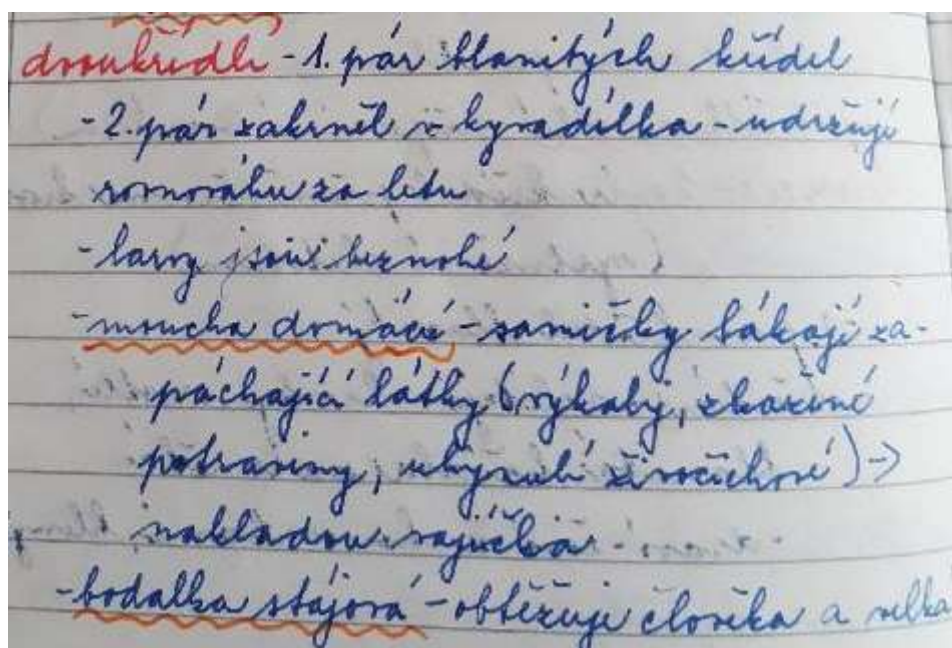 dvoukřídlí - 1. pár blanitých křídel
- 2. pár zakrněl v kyvadélka - udržují
rovnováhu za letu
- larvy jsou beznohé
- moucha domácí - samičky lákají za-
páchající látky (výkaly, zkažené
potraviny, uhynulí živočichové) →
nakladou vajíčka
- bodalka stájová - obtěžuje člověka a velká